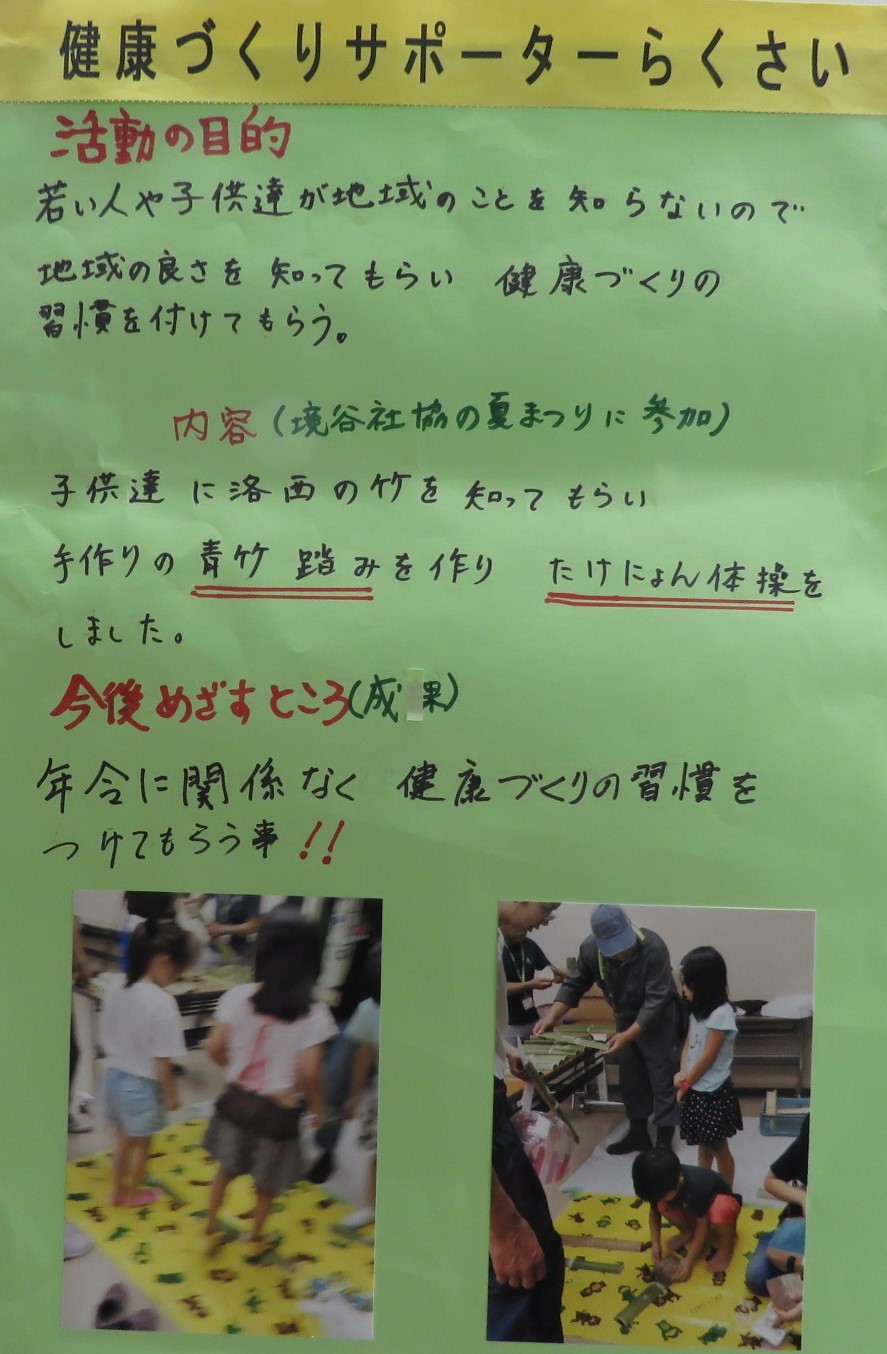 健康づくりサポーターらくさい
活動の目的
若い人や子供達が地域のことを知らないので
地域の良さを知ってもらい 健康づくりの
習慣を付けてもらう。
内容(境谷社協の夏まつりに参加)
子供達に洛西の竹を知ってもらい
手作りの青竹踏みを作り たけにょん体操を
しました。
今後めざすところ(成果)
年令に関係なく 健康づくりの習慣を
つけてもらう事!!